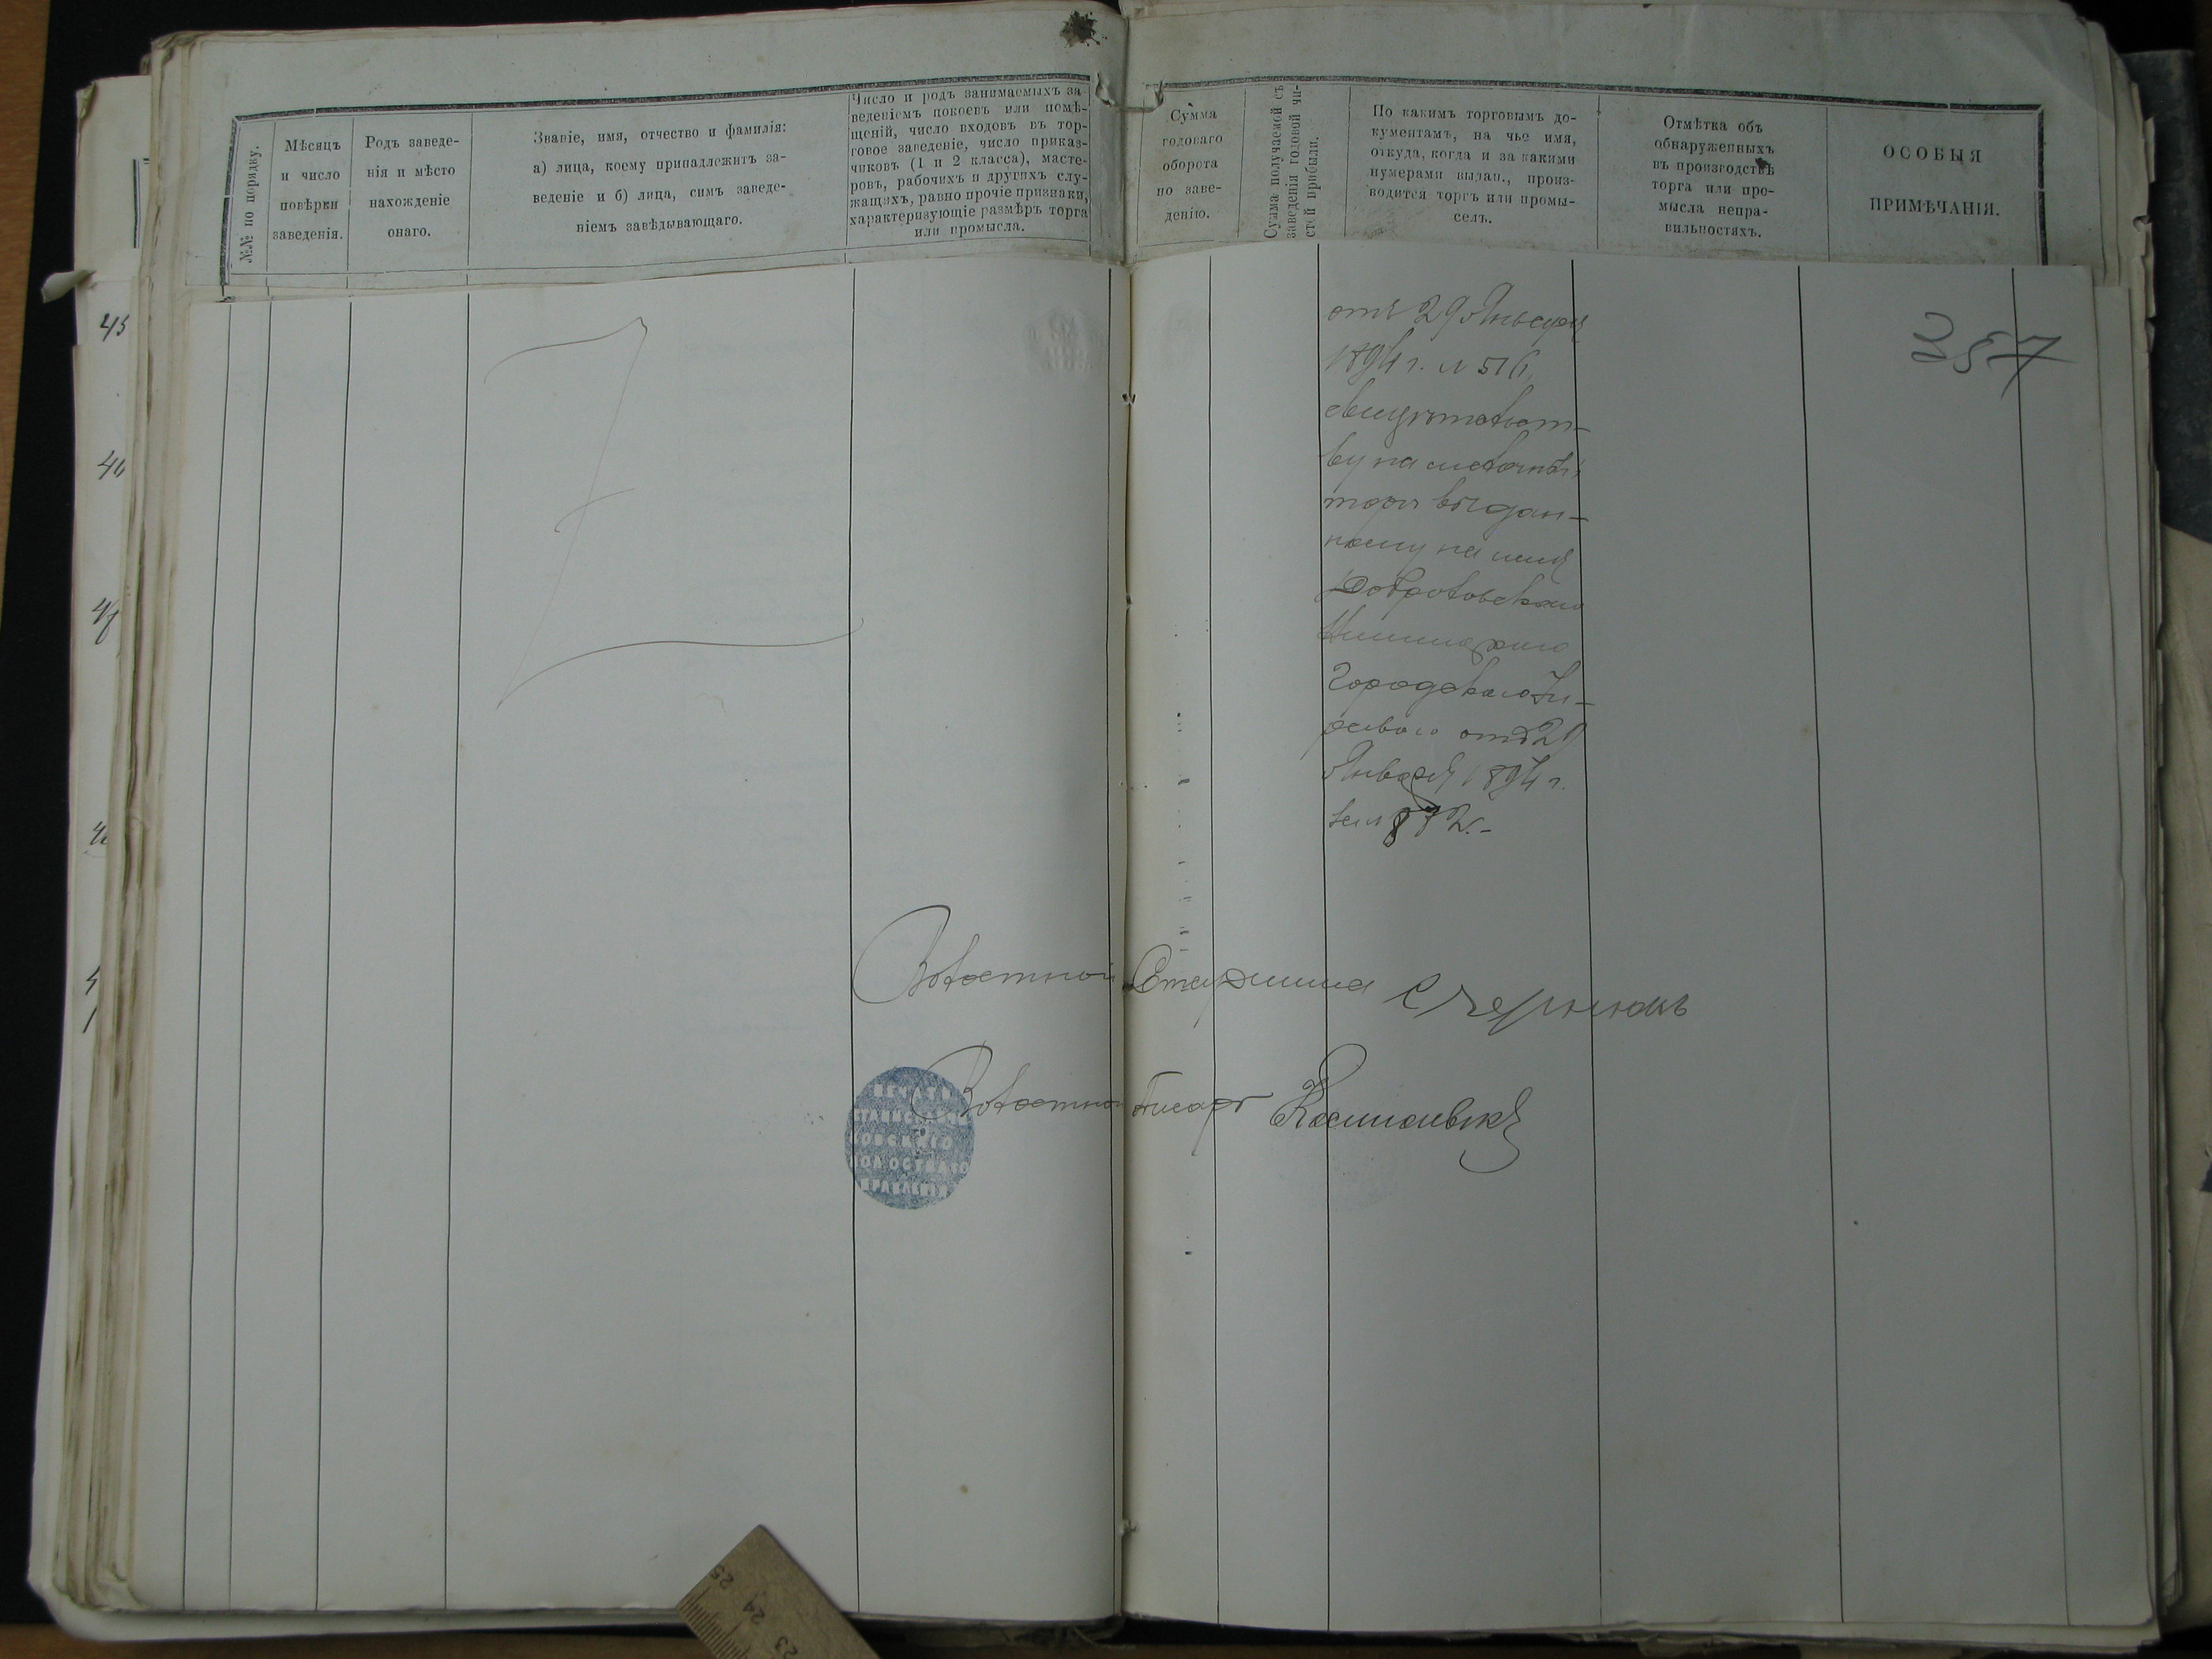 №№ по порядку.
Мѣсяцъ
и число
повѣрки
заведенія.
Родъ заведе-
нія и мѣсто
нахожденіе
онаго.
Званіе, имя, отчество и фамилія:
а) лица, коему принадлежитъ за-
веденіе и б) лица, симъ заведе-
ніемъ завѣдывающаго.
Число и родъ занимаемыхъ за-
веденіемъ покоевъ или помѣ-
щеній, число входовъ въ тор-
говое заведеніе, число приказ-
чиковъ (1 и 2 класса), масте-
ровъ, рабочихъ и другихъ слу-
жащихъ, равно прочіе признаки,
характеризующіе размѣръ торга
или промысла.
Сумма
годоваго
оборота
по заве-
денію.
Сумма получаемой съ
заведенія годовой чи-
стой прибыли.
По какимъ торговымъ до-
кументамъ, на чье имя,
откуда, когда и за какими
нумерами выдан., произ-
водится торгъ или промы-
селъ.
Отмѣтка объ
обнаруженныхъ
въ производствѣ
торга или про-
мысла непра-
вильностяхъ.
ОСОБЫЯ
ПРИМѢЧАНІЯ.
357
отъ 29 Января
1894 г. № 516
свидѣтельст-
ву на мелочный
торгъ выдан-
ному на имя
Городскаго
отъ 29
Января 1894 г.
за № 872.-
Волостной Старшина
Волостной Писарь
ПЕЧАТЬ
ВОЛОСТНАГО
ПРАВЛЕНІЯ
45
46
25 24 23